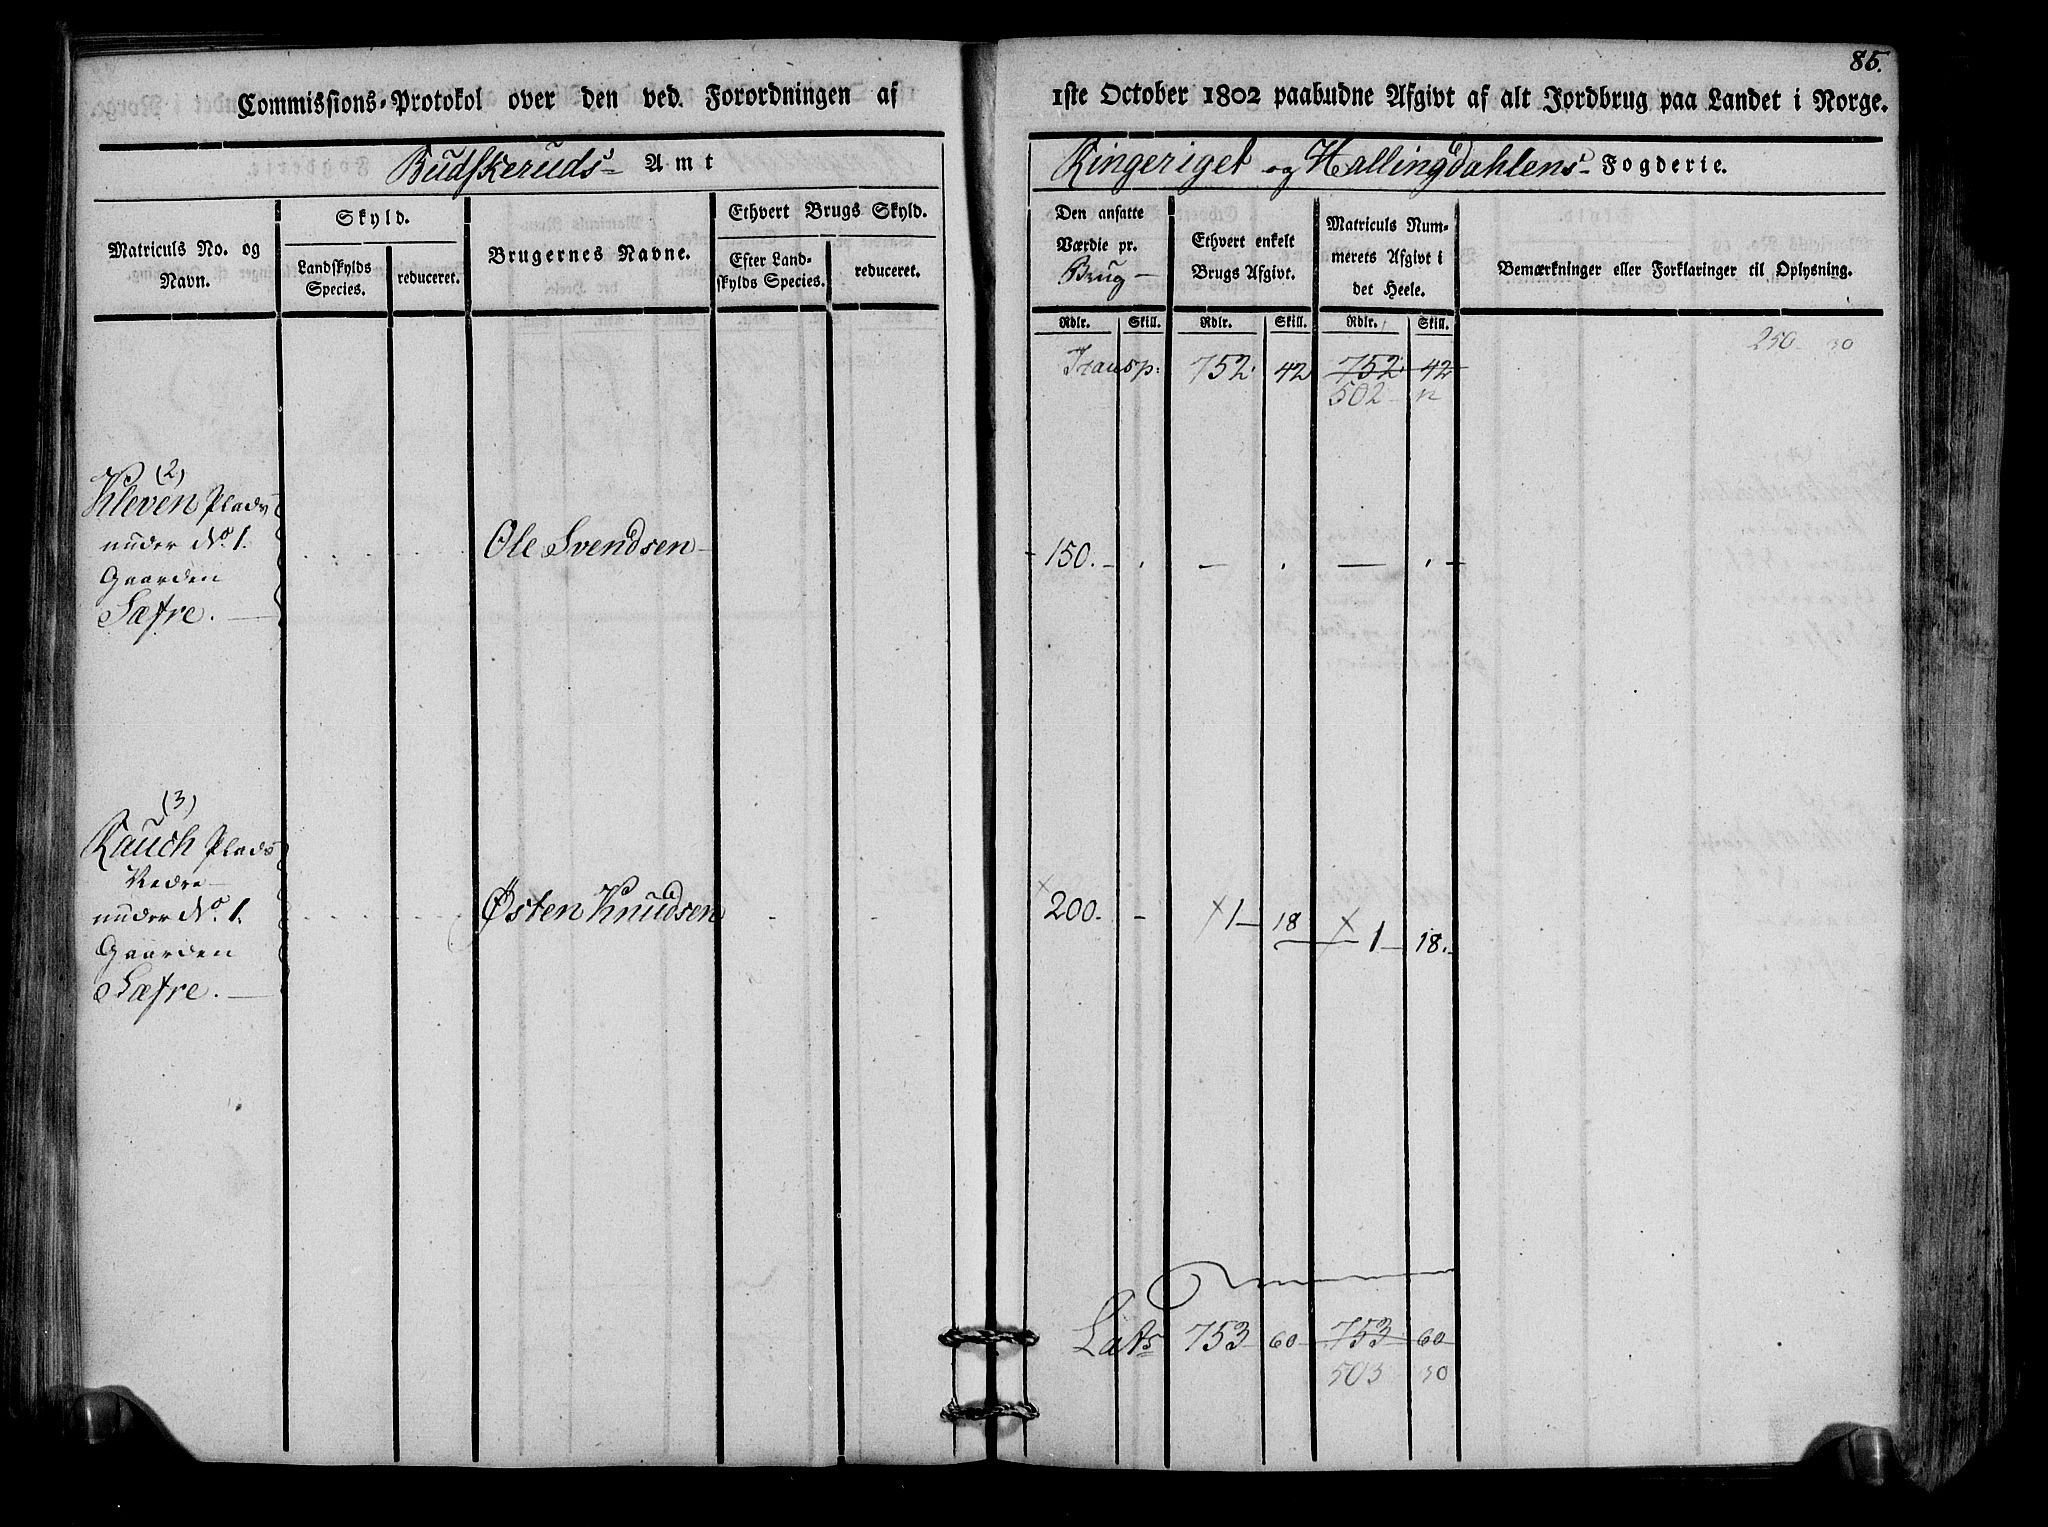 85.
Commissions-Protokol over den ved Forordningen af
1ste October 1802 paabudne Afgivt af alt Jordbrug paa Landet i Norge.
Budskeruds Amt
Ringeriget og Hallingdahlens Fogderie.
Matriculs No. og Navn.
Skyld.
Landskylds Species.
reduceret.
Brugernes Navne.
Ethvert Brugs Skyld.
Efter Landskylds Species.
reduceret.
Den ansatte Værdie pr. Brug
Ethvert enkelt Brugs Afgivt.
Matriculs Nummerets Afgivt i det Heele.
Bemærkninger eller Forklaringer til Oplysning.
Rdlr. Skill. Rdlr. Skill. Rdlr. Skill.
250 30
Transp: 752. 42 752. 42
502 12
(2)
Kleven Plads
under No. 1.
Gaarden
Sætre.
Ole Svendsen
150.
(3)
Rauch Plads
Nedre
under No. 1.
Gaarden
Sætre.
Østen Knudsen
200. 1 18 1 18.
Lats 753 60 753. 60
503 30